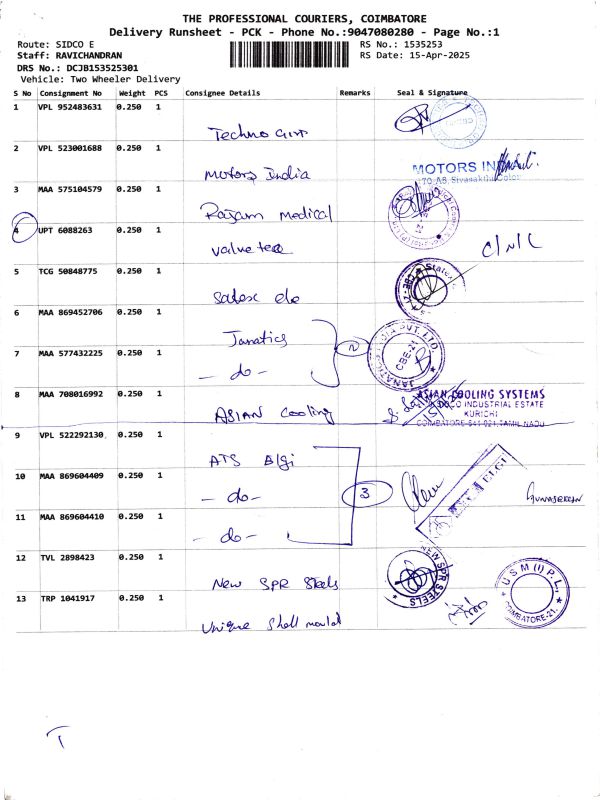 THE PROFESSIONAL COURIERS, COIMBATORE
Delivery Runsheet - PCK - Phone No.:9047080280 - Page No.:1
Route: SIDCO E
RS No.: 1535253
Staff: RAVICHANDRAN
RS Date: 15-Apr-2025
DRS No.: DCJB153525301
Vehicle: Two Wheeler Delivery
S No Consignment No Weight PCS Consignee Details Remarks Seal & Signature
1 VPL 952483631 0.250 1
Techno
2 VPL 523001688 0.250 1
Motors India
MOTORS
70, A6, Sivasakthi
3 MAA 575104579 0.250 1
Rajam Medical
4 UPT 6088263 0.250 1
C/N/L
5 TCG 50848775 0.250 1
6 MAA 869452706 0.250 1
Janatics
2
JANATICS INDIA PVT. LTD.
CBE-21
7 MAA 577432225 0.250 1
- do -
8 MAA 708016992 0.250 1
ASIAN Cooling
ASIAN COOLING SYSTEMS
INDUSTRIAL ESTATE
KURICHI
COIMBATORE-641 021, TAMIL NADU
9 VPL 522292130 0.250 1
ATS Elgi
10 MAA 869604409 0.250 1
- do -
3
ELGI
11 MAA 869604410 0.250 1
- do -
12 TVL 2898423 0.250 1
New SPR Steels
NEW SPR STEELS
U S M (I) P. L.,
COIMBATORE-21.
13 TRP 1041917 0.250 1
Unique Shell mould